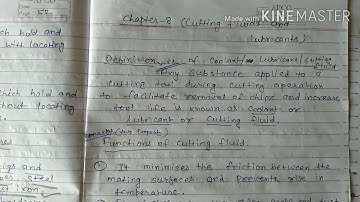 Made with KINEMASTER
Chapter-8 (Cutting fluids and
lubricants)
hold and
with locating
Definition of Coolant Lubricant / Cutting fluid
Any substance applied to a
cutting tool during cutting operation
to facilitate removal of chips and increase
tool life is known as coolant or
lubricant or cutting fluid.
hold and
without locating
Functions of cutting fluid.
and
steel
iron
It minimises the friction between the
mating surfaces and prevents rise in
temperature.